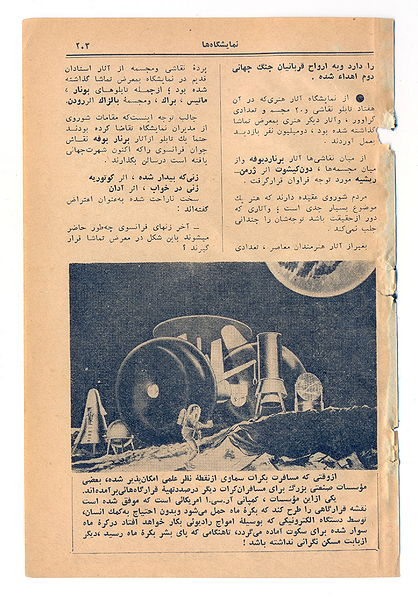 نمایشگاهها
۲۰۳
را دارد وبه ارواح قربانیان جنگ جهانی
دوم اهداء شده .
از نمایشگاه آثار هنری‌که در آن
هفتاد تابلو نقاشی و۲۰ مجسمه و تعدادی
گراوور ، وآثار دیگر هنری بمعرض تماشا
گذاشته شده بود ، دومیلیون نفر بازدید
بعمل آوردند .
از میان نقاشی‌ها آثار برناردبوفه واز
میان مجسمه‌ها ، دون‌کیشوت اثر ژرمن‌ــ
ریشیه مورد توجه فراوان قرارگرفت .
مردم شوروی عقیده دارند که هنر یک
موضوع بسیار جدی است ؛ وآثاری که
دور ازحقیقت باشد توجه‌شان را چندانی
جلب نمی‌کند .
بغیراز آثار هنرمندان معاصر ، تعدادی
پردهٔ نقاشی ومجسمه از آثار استادان
قدیم در نمایشگاه بمعرض تماشا گذاشته
شده بود ؛ ازجمله تابلوهای بونار ،
ماتیس ، براک ، ومجسمهٔ بالزاک اثررودن.
جالب توجه اینست‌که مقامات شوروی
از مدیران نمایشگاه تقاضا کرده بودند
حتما یک تابلو ازآثار برنار بوفه نقاش
جوان فرانسوی راکه اکنون شهرت‌جهانی
یافته است درسالن بگذارند .
زنی‌که بیدار شده ، اثر کوتوریه
زنی در خواب ، اثر آدان
سخت ناراحت شده به‌عنوان اعتراض
گفته‌اند :
ــ آخر زنهای فرانسوی چه‌طور حاضر
میشوند باین شکل در معرض تماشا قرار
گیرند ؟
ازوقتی که مسافرت بکرات سماوی ازنقطهٔ نظر علمی امکان‌پذیر شده، بعضی
مؤسسات صنعتی بزرگ برای مسافران‌کرات دیگر درصددتهیهٔ قرارگاه‌هائی‌برآمده‌اند.
یکی ازاین مؤسسات ، کمپانی آر.سی.ا امریکائی است که موفق شده است
نقشه قرارگاهی را طرح کند که بکرهٔ ماه حمل می‌شود وبدون احتیاج به‌کمک انسان،
توسط دستگاه الکترونیکی که بوسیلهٔ امواج رادیوئی بکار خواهد افتاد درکرهٔ ماه
سوار شده برای سکونت آماده می‌گردد، تاهنگامی که پای بشر بکرهٔ ماه رسید ،دیگر
ازبابت مسکن نگرانی نداشته باشد !